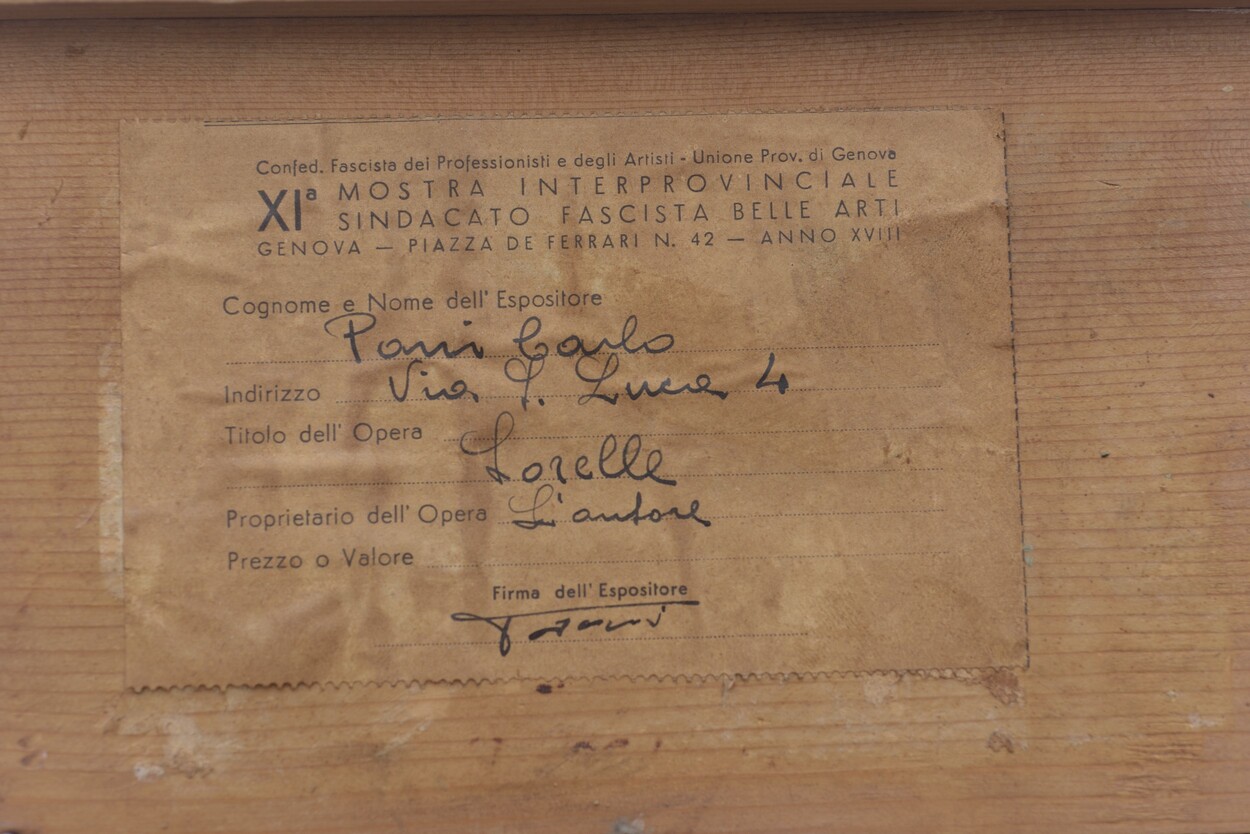 Confed. Fascista dei Professionisti e degli Artisti - Unione Prov. di Genova
XIª MOSTRA INTERPROVINCIALE
SINDACATO FASCISTA BELLE ARTI
GENOVA — PIAZZA DE FERRARI N. 42 — ANNO XVIII
Cognome e Nome dell' Espositore
Carlo
Indirizzo Via S. Luca 4
Titolo dell' Opera
Sorelle
Proprietario dell' Opera L'autore
Prezzo o Valore
Firma dell' Espositore